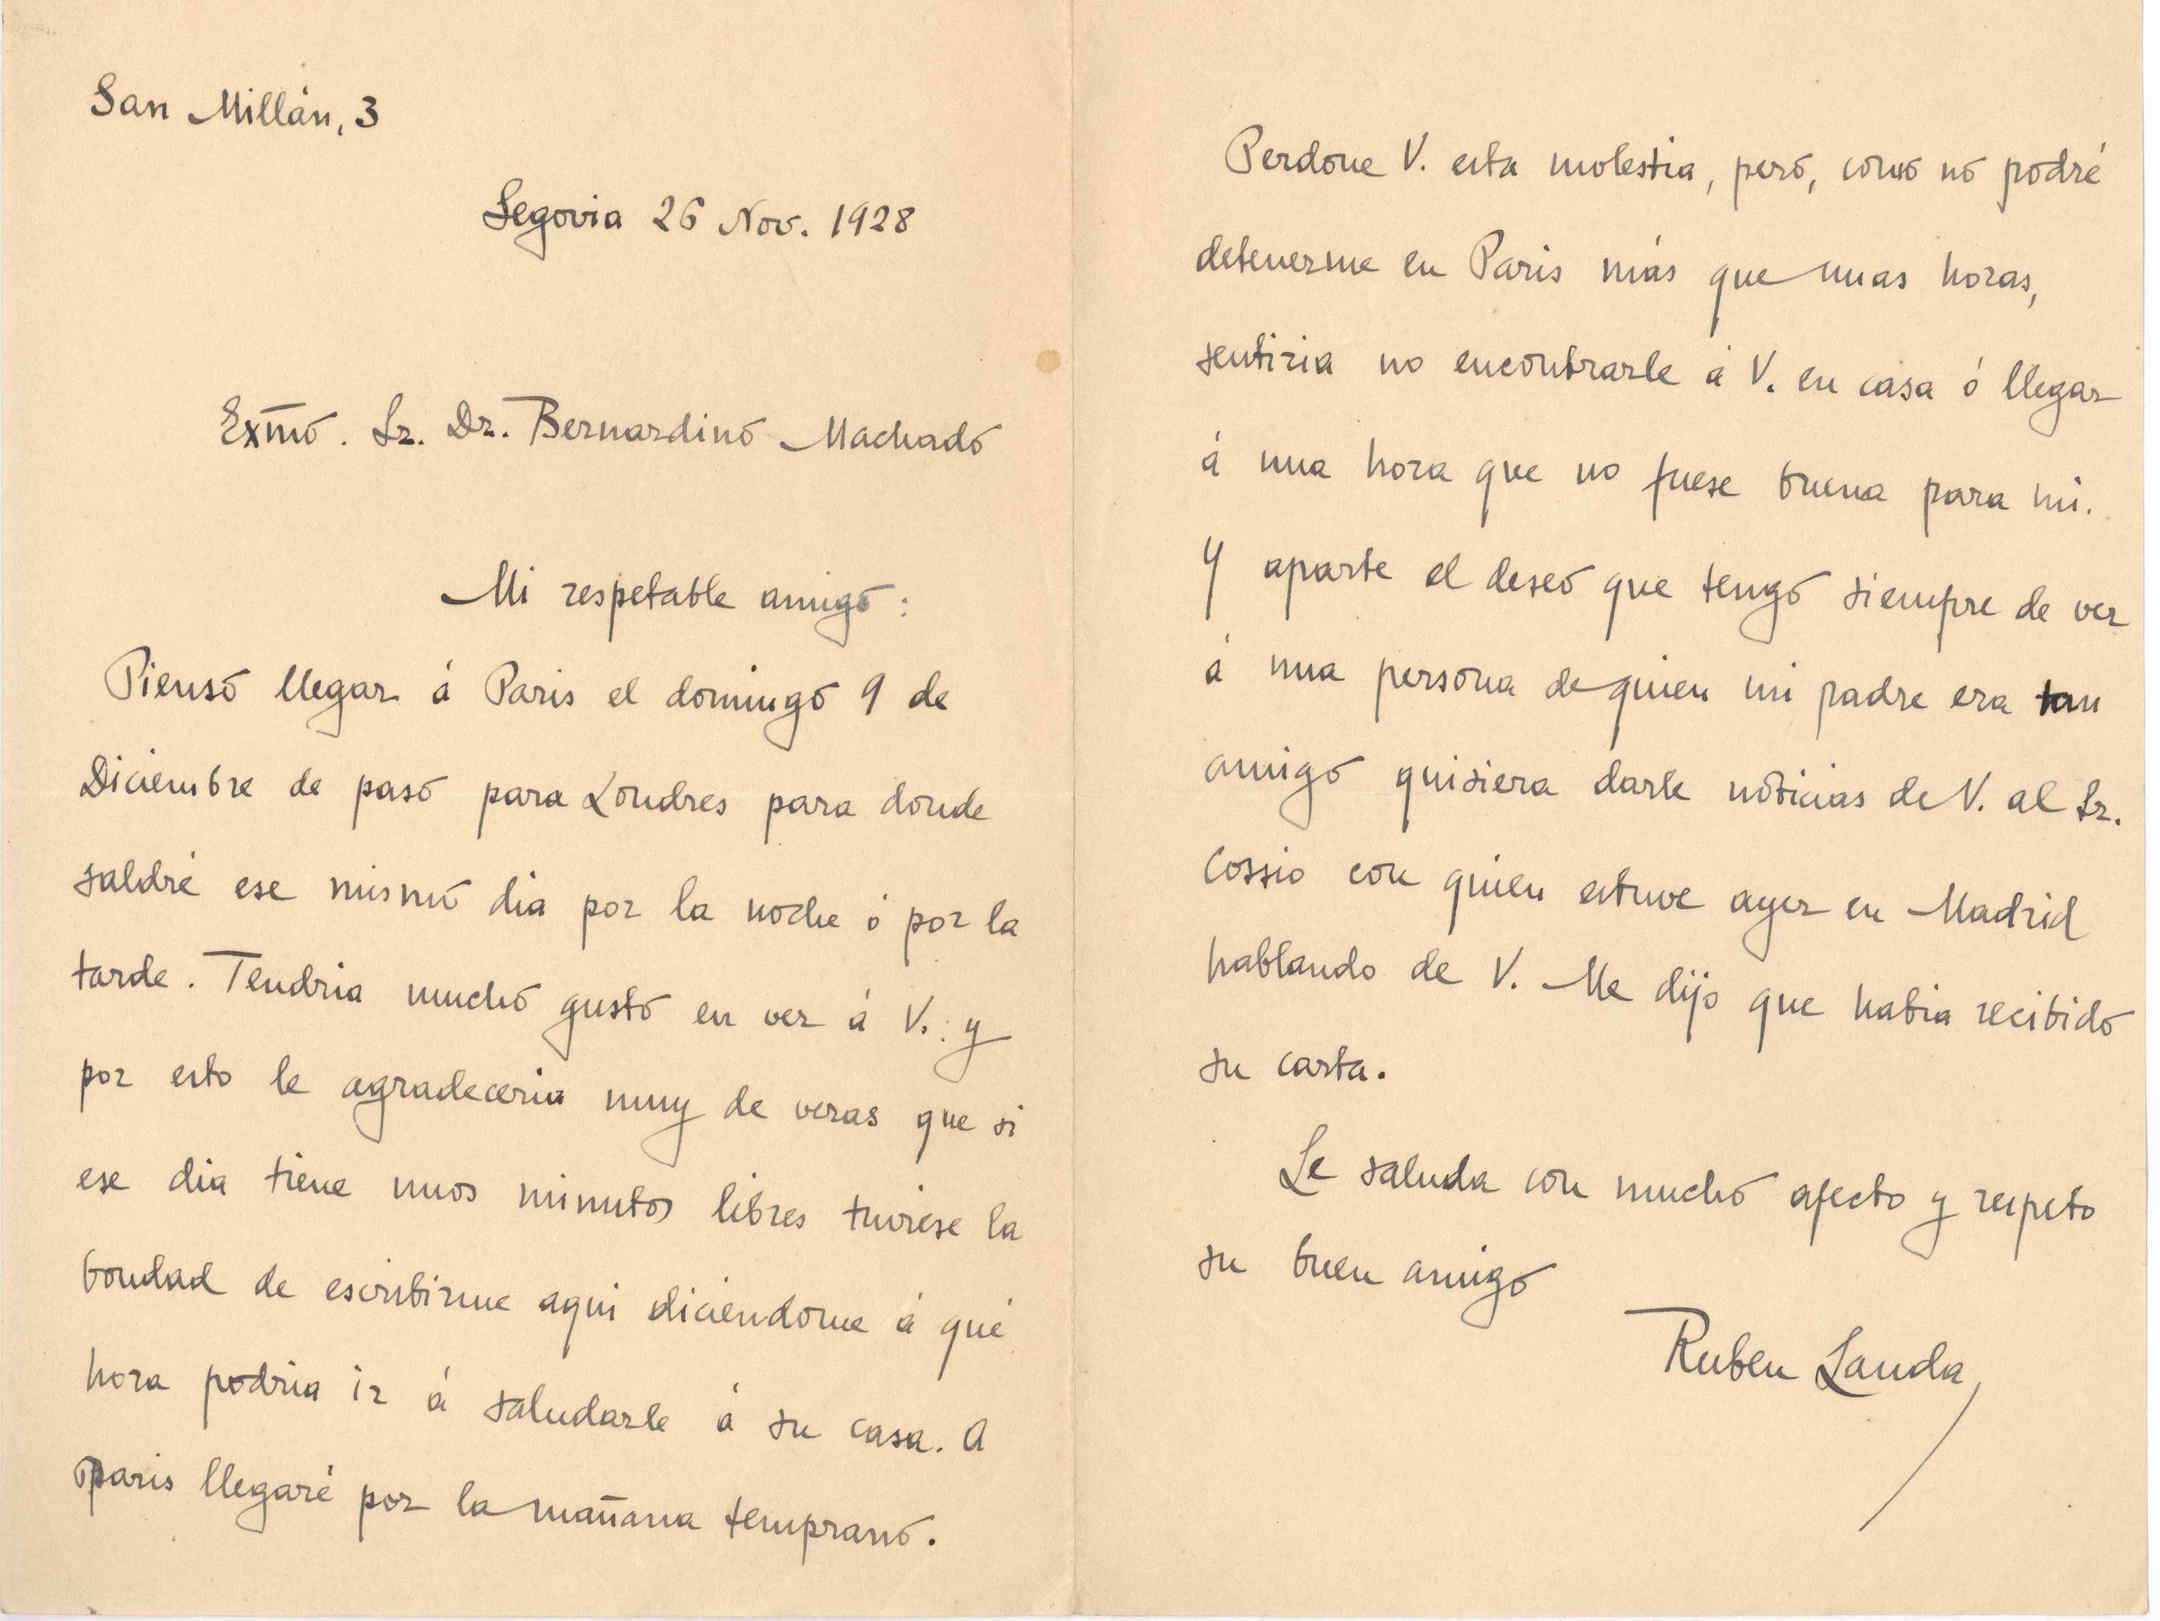 San Millán, 3
Segovia 26 Nov. 1928
Exmo. Sr. Dr. Bernardino Machado
Mi respetable amigo:
Pienso llegar á Paris el domingo 9 de
Diciembre de paso para Londres para donde
saldré ese mismo dia por la noche ó por la
tarde. Tendria mucho gusto en ver á V. y
por esto le agradeceria muy de veras que si
ese dia tiene unos minutos libres tuviese la
bondad de escribirme aqui diciendome á qué
hora podria ir á saludarle á su casa. A
Paris llegaré por la mañana temprano.
Perdone V. esta molestia, pero, como no podré
detenerme en Paris más que unas horas,
sentiria no encontrarle á V. en casa ó llegar
á una hora que no fuese buena para mi.
Y aparte el deseo que tengo siempre de ver
á una persona de quien mi padre era tan
amigo quisiera darle noticias de V. al Sr.
Cossio con quien estuve ayer en Madrid
hablando de V. Me dijo que habia recibido
su carta.
Le saluda con mucho afecto y respeto
su buen amigo
Ruben Landa